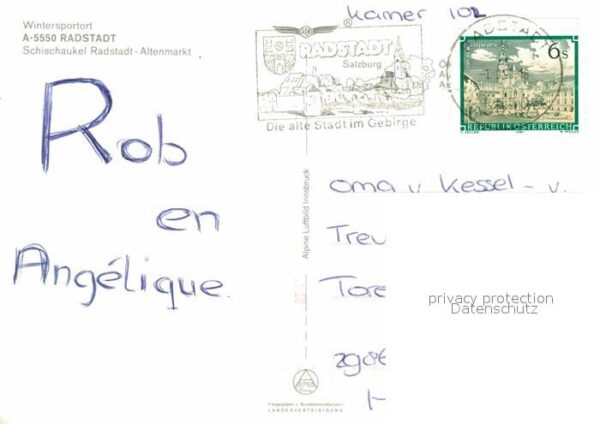 Wintersportort
A-5550 RADSTADT
Schischaukel Radstadt-Altenmarkt
Kamer 102
RADSTADT
Salzburg
Die alte Stadt im Gebirge
RADSTADT
6s
REPUBLIK ÖSTERREICH
Rob
en
Angélique.
Alpine Luftbild Innsbruck
oma v Kessel - v.
Treu
Tore
2908
privacy protection
Datenschutz
Freigegeben v. Bundesministerium f.
LANDESVERTEIDIGUNG